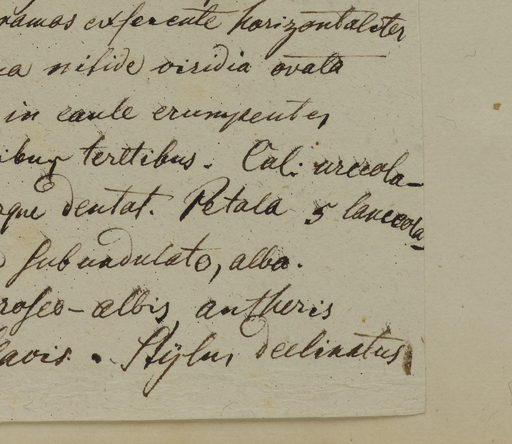 ramos exserente horizontaliter
nitide viridia ovata
in caule erumpentes
teretibus. Cal: urceola-
dentat. Petala 5 lanceola-
subundulato, alba.
roseo-albis antheris
Stylus declinatus